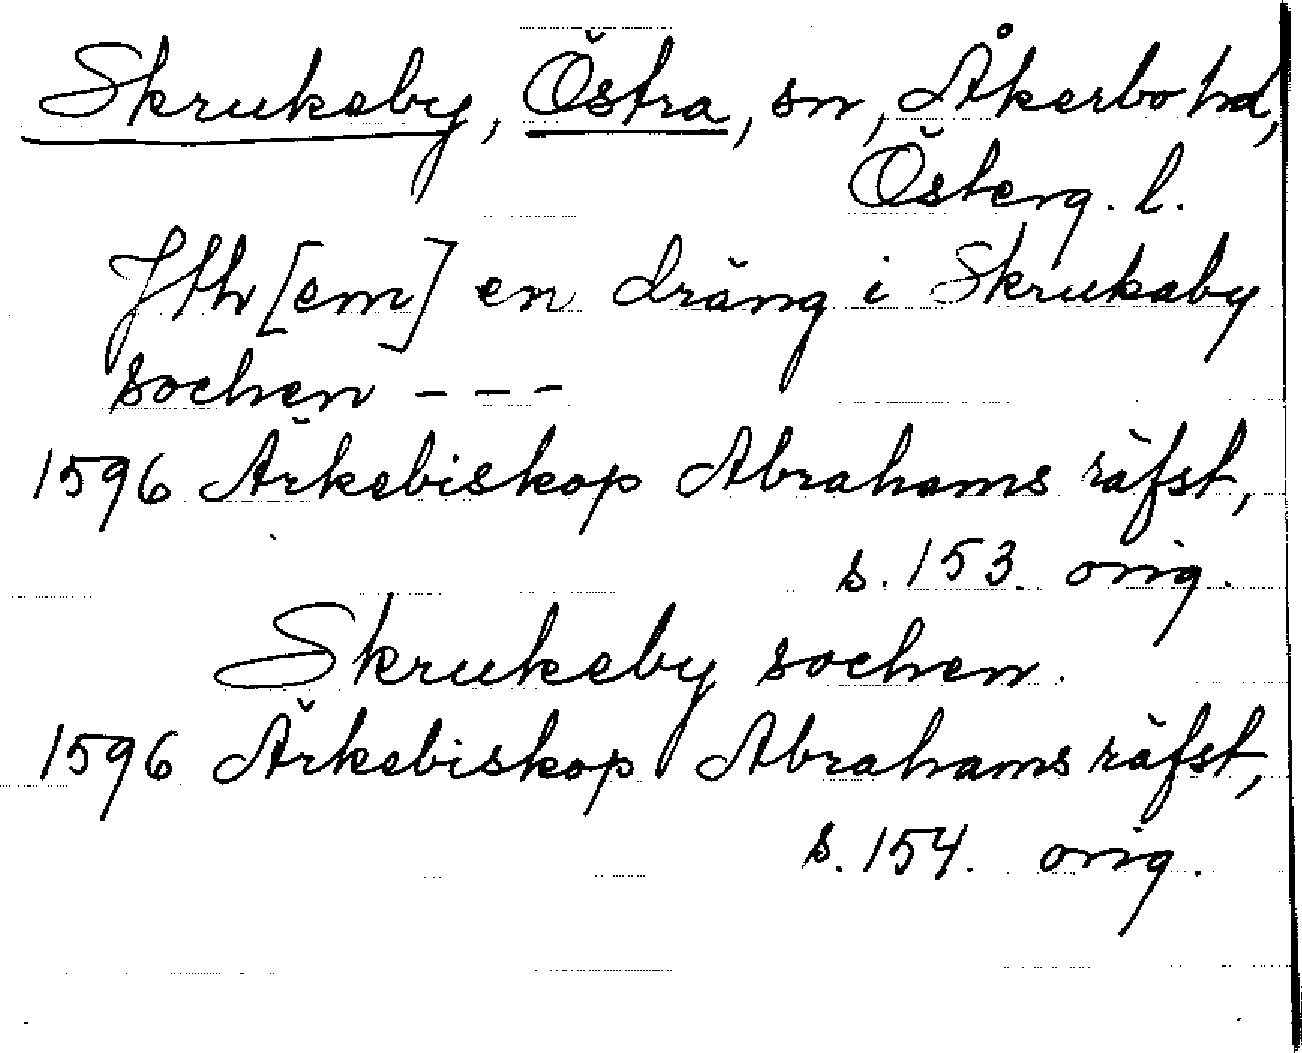 Skrukeby, Östra, sn, Åkerbo hd,
Österg. l.
Jth [em] en dräng i Skrukaby
sochen - - -
1596 Ärkebiskop Abrahams räfst,
s. 153. orig.
Skrukeby sochen.
1596 Ärkebiskop Abrahams räfst,
s. 154. orig.